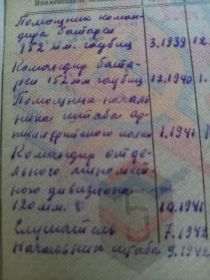 Помощник коман-
дира батареи
152 мм. гаубиц 3.1939 12.
Командир бата-
реи 152мм гаубиц 12.1940 1.
Помощник началь-
ника штаба ар-
тиллерийского полка 1.1941
Командир отде-
льного миномет-
ного дивизиона
120мм. 10.1941
Слушатель 7.1942
Начальник штаба 9.1942